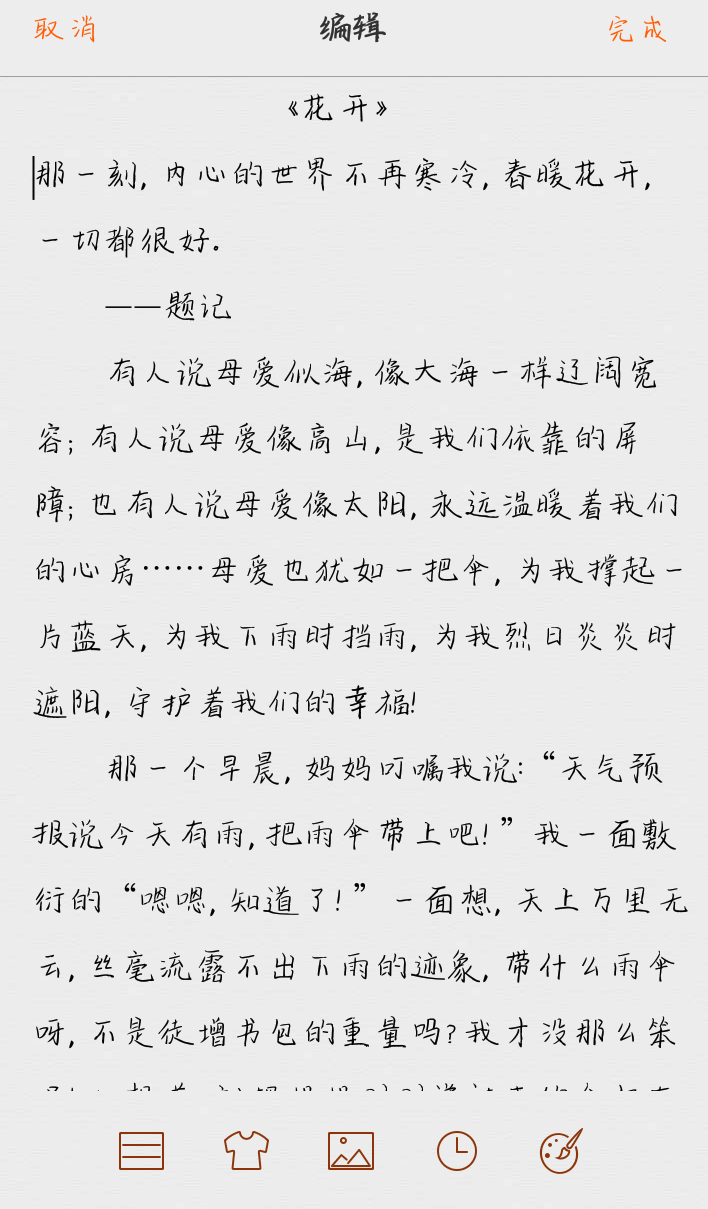 取消 编辑 完成
《花开》
那一刻,内心的世界不再寒冷,春暖花开,
一切都很好.
——题记
有人说母爱似海,像大海一样辽阔宽
容;有人说母爱像高山,是我们依靠的屏
障;也有人说母爱像太阳,永远温暖着我们
的心房……母爱也犹如一把伞,为我撑起一
片蓝天,为我下雨时挡雨,为我烈日炎炎时
遮阳,守护着我们的幸福!
那一个早晨,妈妈叮嘱我说:“天气预
报说今天有雨,把雨伞带上吧!”我一面敷
衍的“嗯嗯,知道了!”一面想,天上万里无
云,丝毫流露不出下雨的迹象,带什么雨伞
呀,不是徒增书包的重量吗?我才没那么笨